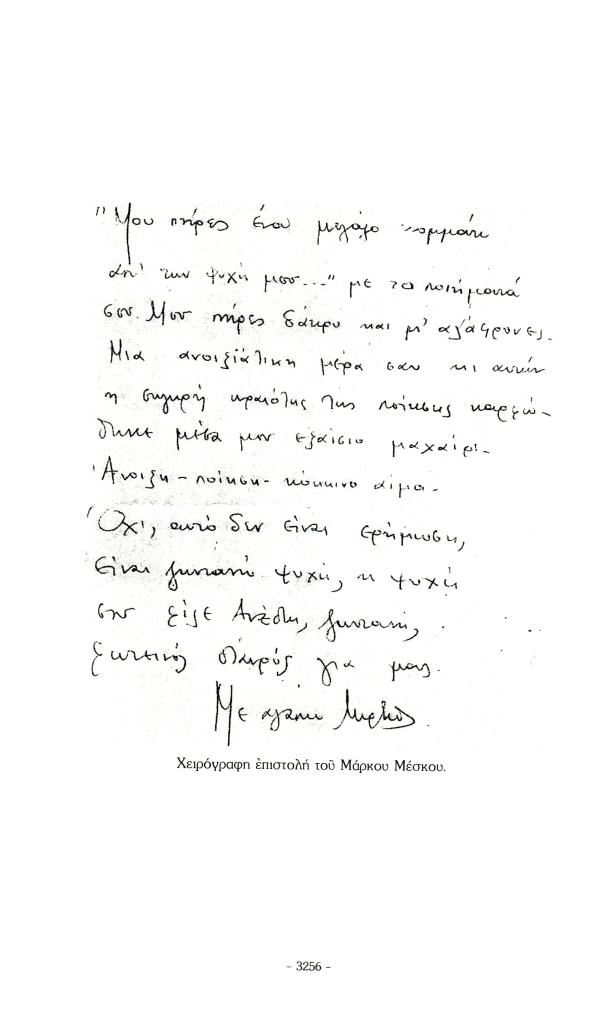 "Μου πήρες ένα μεγάλο κομμάτι
απ' την ψυχή μου..." με τα ποιήματά
σου. Μου πήρες δάκρυ και μ' αλάφρυνες.
Μια ανοιξιάτικη μέρα σαν κι αυτήν
η σιγηρή ωραιότης της ποίησης καρφώ-
θηκε μέσα μου εξαίσιο μαχαίρι.
Άνοιξη - ποίηση - κόκκινο αίμα.
Όχι, αυτό δεν είναι ερήμωση,
είναι ζωντανή ψυχή, η ψυχή
σου φίλε Ανέστη, ζωντανή,
φωτεινός για μας.
Με αγάπη Μάρκος
Χειρόγραφη ἐπιστολή τοῦ Μάρκου Μέσκου.
- 3256 -